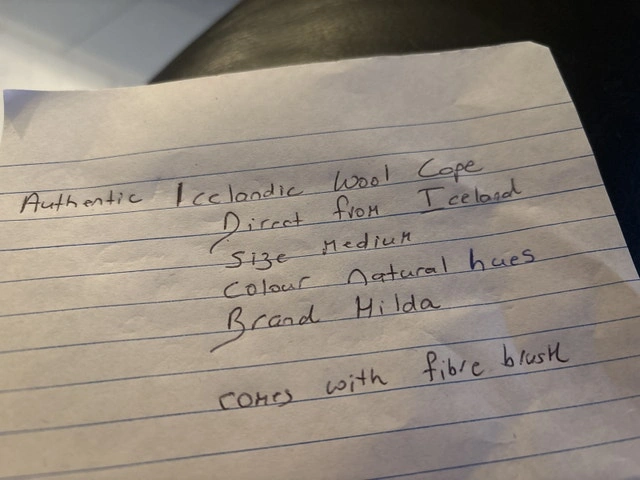 Authentic Icelandic Wool Cape
Direct from Iceland
Size Medium
Colour natural hues
Brand Hilda
comes with fibre brush